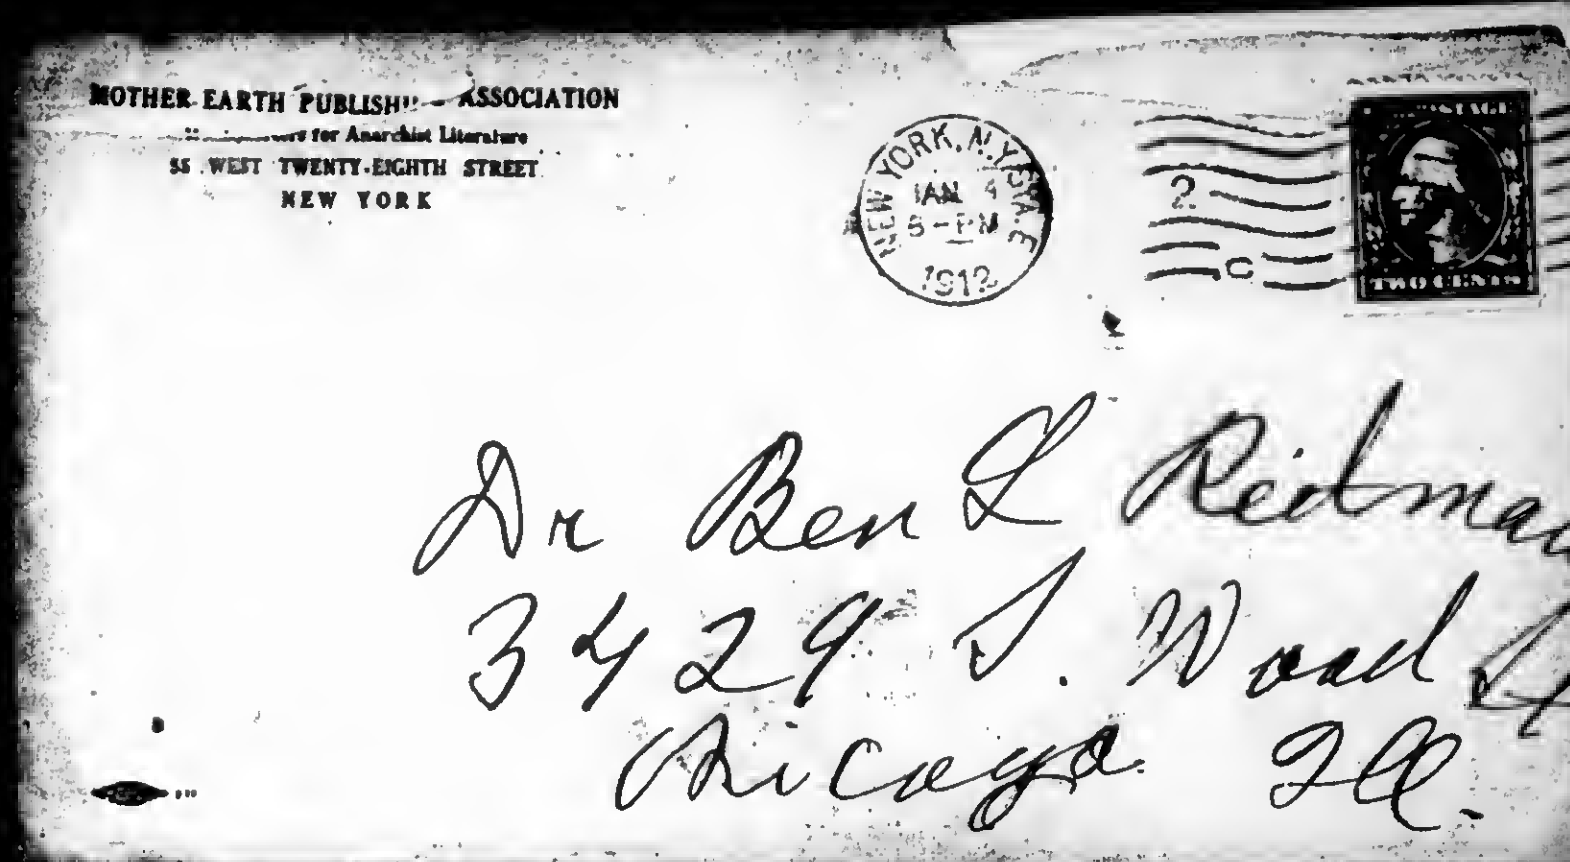 MOTHER EARTH PUBLISHI ASSOCIATION
for Anarchist Literature
55 WEST TWENTY-EIGHTH STREET
NEW YORK
NEW YORK, N.Y. STA. E
JAN 4
8-PM
1912
2
C
POSTAGE
TWO CENTS
Dr Ben L Reitman
3429 S. Wood St
Chicago Ill.